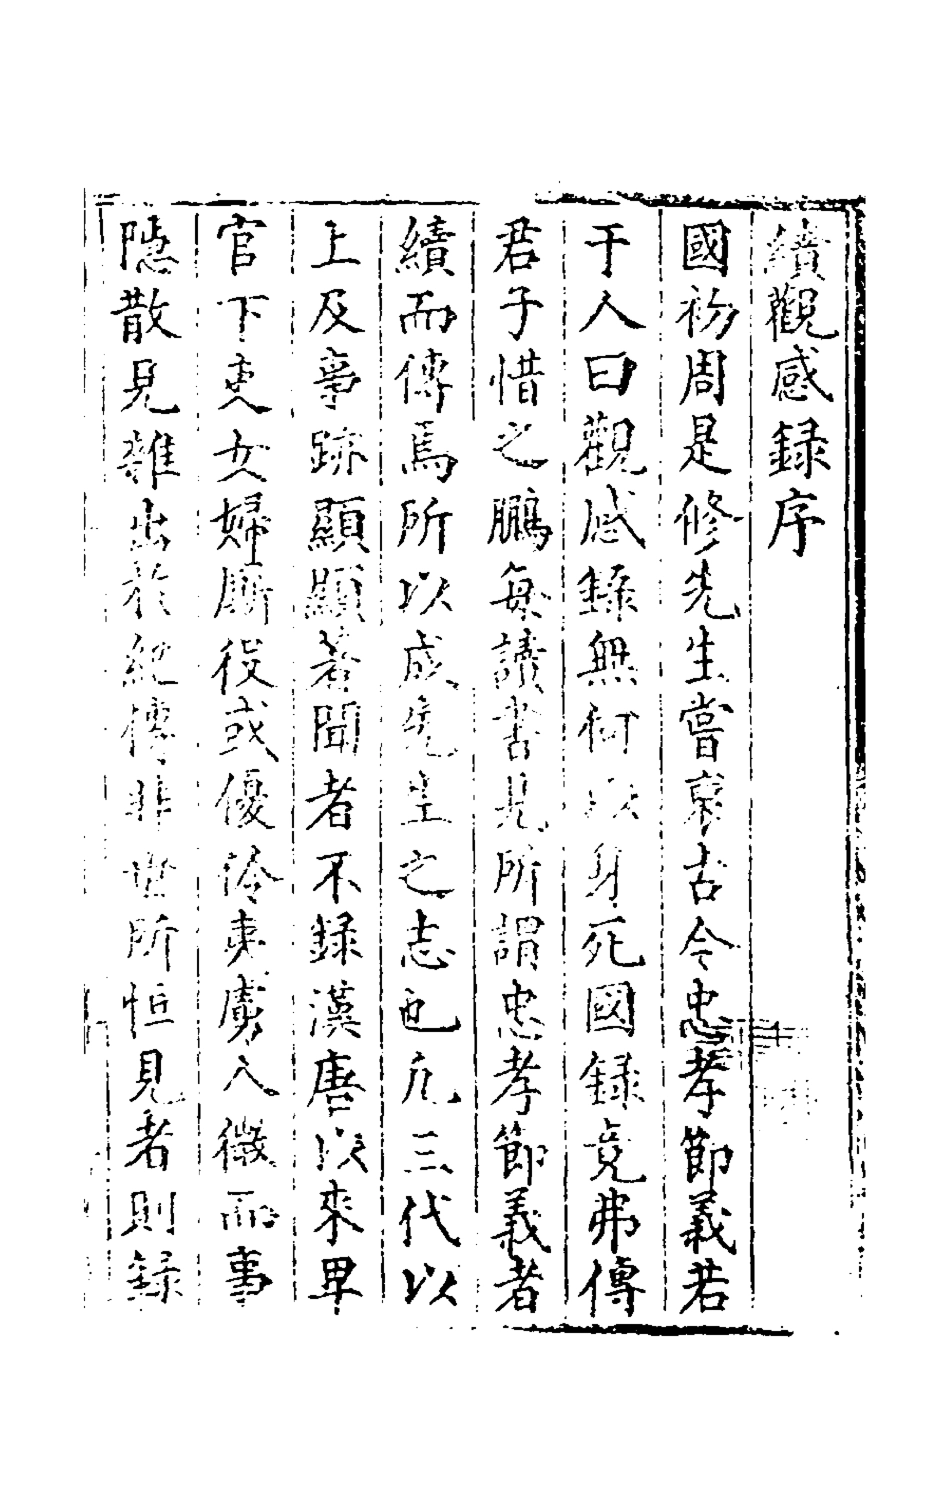 續觀感録序
國初周是修先生嘗裒古今忠孝節義若
干人曰觀感録無何以身死國録竟弗傳
君子惜之鵬每讀書見所謂忠孝節義者
續而傳焉所以成先生之志也凡三代以
上及事跡顯顯著聞者不録漢唐以來卑
官下吏女婦廝役或優伶夷虜人微而事
隠散見雜出於紀傳非世所恒見者則録